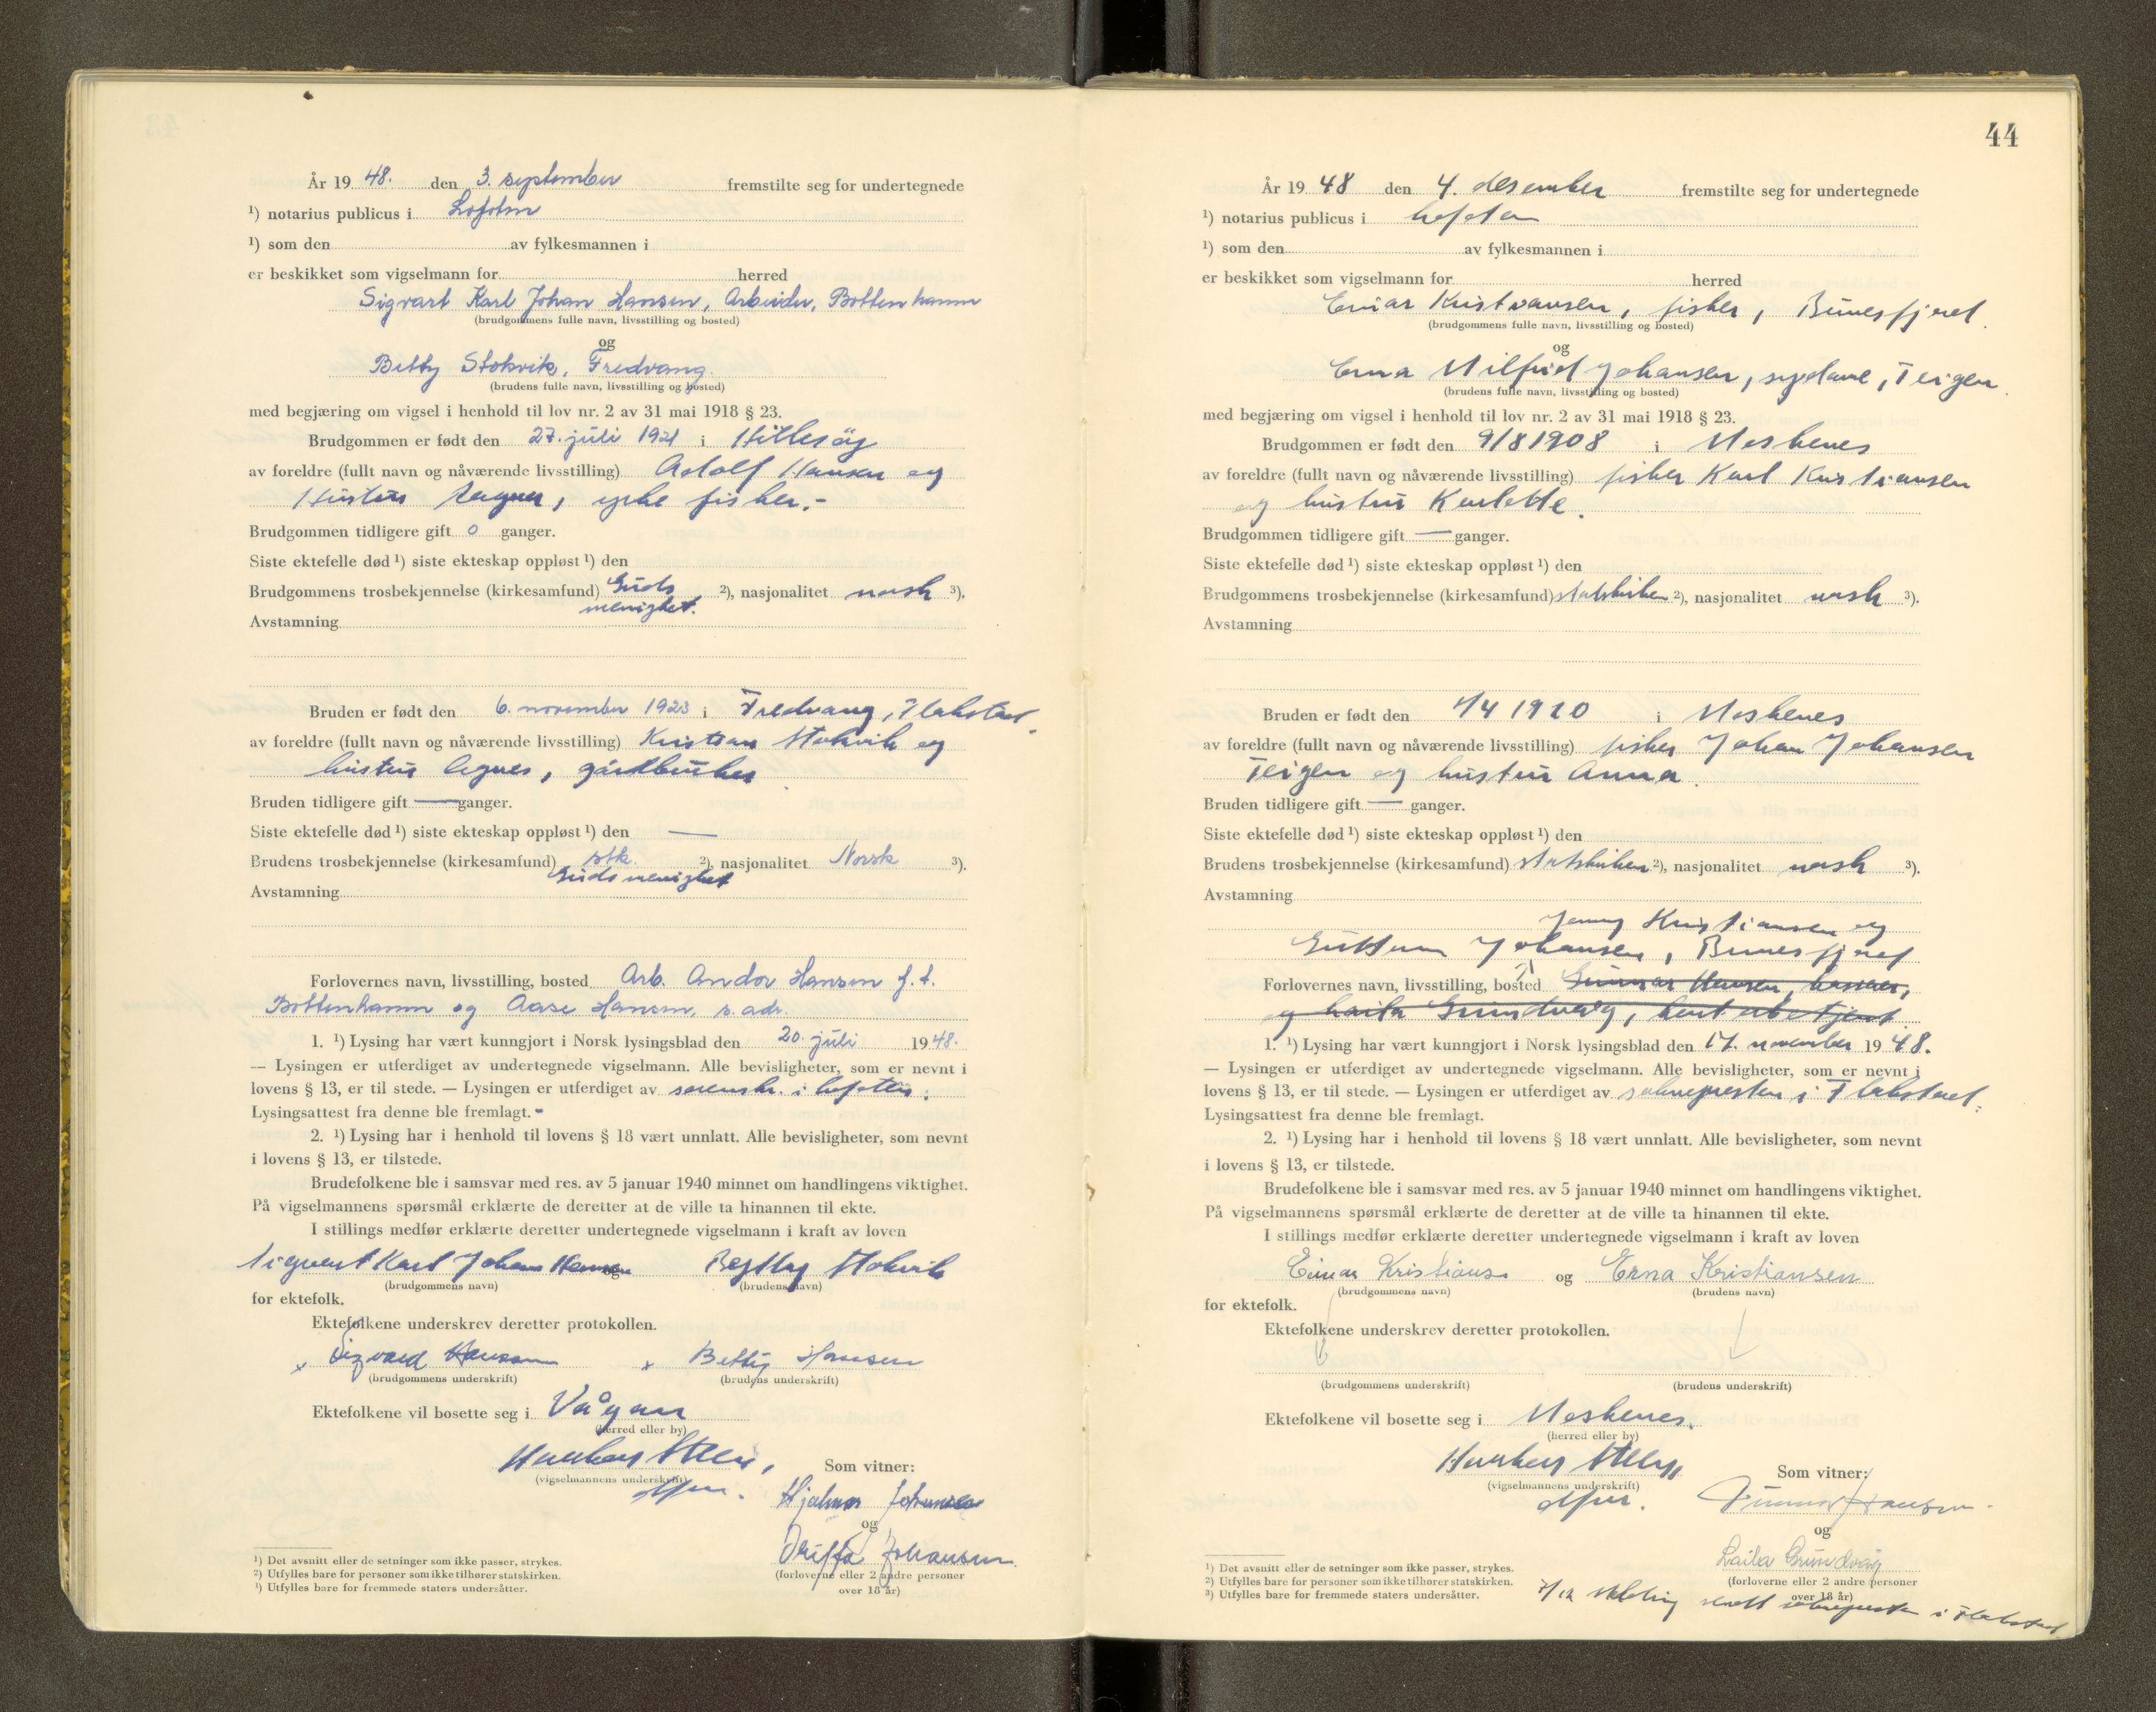 År 19 48. den 3. september fremstilte seg for undertegnede
¹) notarius publicus i Lofoten
¹) som den av fylkesmannen i
er beskikket som vigselmann for herred
Sigvart Karl Johan Hansen, Arbeider, Bottenhamn
(brudgommens fulle navn, livsstilling og bosted)
og
Betty Stokvik, Fredvang
(brudens fulle navn, livsstilling og bosted)
med begjæring om vigsel i henhold til lov nr. 2 av 31 mai 1918 § 23.
Brudgommen er født den 27. juli 1921 i Hillesøy
av foreldre (fullt navn og nåværende livsstilling) Adolf Hansen og
Hustru Agnes, yrke fisker.-
Brudgommen tidligere gift 0 ganger.
Siste ektefelle død ¹) siste ekteskap oppløst ¹) den
Brudgommens trosbekjennelse (kirkesamfund) Guds ²), nasjonalitet norsk ³).
menighet.
Avstamning
Bruden er født den 6. november 1923 i Fredvang, Flakstad.
av foreldre (fullt navn og nåværende livsstilling) Kristian Stokvik og
hustru Agnes, gårdbruker
Bruden tidligere gift — ganger.
Siste ektefelle død ¹) siste ekteskap oppløst ¹) den —
Brudens trosbekjennelse (kirkesamfund) stk. ²), nasjonalitet Norsk ³).
Guds menighet
Avstamning
Forlovernes navn, livsstilling, bosted Arb. Andor Hansen f. t.
Bottenhamn og Aase Hansen, s. adr.
1. ¹) Lysing har vært kunngjort i Norsk lysingsblad den 20. juli 1948.
— Lysingen er utferdiget av undertegnede vigselmann. Alle bevisligheter, som er nevnt i
lovens § 13, er til stede. — Lysingen er utferdiget av sorenskr. i Lofoten.
Lysingsattest fra denne ble fremlagt. -
2. ¹) Lysing har i henhold til lovens § 18 vært unnlatt. Alle bevisligheter, som nevnt
i lovens § 13, er tilstede.
Brudefolkene ble i samsvar med res. av 5 januar 1940 minnet om handlingens viktighet.
På vigselmannens spørsmål erklærte de deretter at de ville ta hinannen til ekte.
I stillings medfør erklærte deretter undertegnede vigselmann i kraft av loven
Sigvart Karl Johan Hansen Betty Stokvik
(brudgommens navn) (brudens navn)
for ektefolk.
Ektefolkene underskrev deretter protokollen.
x Sigvard Hansen x Betty Hansen
(brudgommens underskrift) (brudens underskrift)
Ektefolkene vil bosette seg i Vågan
(herred eller by)
(vigselmannens underskrift)
Som vitner:
Hjalmar Johansen
og
Johansen
(forloverne eller 2 andre personer
over 18 år)
¹) Det avsnitt eller de setninger som ikke passer, strykes.
²) Utfylles bare for personer som ikke tilhører statskirken.
³) Utfylles bare for fremmede staters undersåtter.
44
År 19 48 den 4. desember fremstilte seg for undertegnede
¹) notarius publicus i Lofoten
¹) som den av fylkesmannen i
er beskikket som vigselmann for herred
Einar Kristiansen, fisker, Bunesfjord.
(brudgommens fulle navn, livsstilling og bosted)
og
Erna Hilfrid Johansen, sydame, Teigen.
(brudens fulle navn, livsstilling og bosted)
med begjæring om vigsel i henhold til lov nr. 2 av 31 mai 1918 § 23.
Brudgommen er født den 9/8 1908 i Moskenes
av foreldre (fullt navn og nåværende livsstilling) fisker Karl Kristiansen
og hustru Karlotte.
Brudgommen tidligere gift — ganger.
Siste ektefelle død ¹) siste ekteskap oppløst ¹) den
Brudgommens trosbekjennelse (kirkesamfund) statskirken ²), nasjonalitet norsk ³).
Avstamning
Bruden er født den 1/4 1920 i Moskenes
av foreldre (fullt navn og nåværende livsstilling) fisker Johan Johansen
Teigen og hustru Anna.
Bruden tidligere gift — ganger.
Siste ektefelle død ¹) siste ekteskap oppløst ¹) den
Brudens trosbekjennelse (kirkesamfund) statskirken ²), nasjonalitet norsk ³).
Avstamning
Jenny Kristiansen og
Guttorm Johansen, Bunesfjord
Forlovernes navn, livsstilling, bosted Gunnar Hansen, kasserer,
og Laila Grundvåg, kontorbetjent
1. ¹) Lysing har vært kunngjort i Norsk lysingsblad den 17. november 1948.
— Lysingen er utferdiget av undertegnede vigselmann. Alle bevisligheter, som er nevnt i
lovens § 13, er til stede. — Lysingen er utferdiget av soknepresten i Flakstad.
Lysingsattest fra denne ble fremlagt.
2. ¹) Lysing har i henhold til lovens § 18 vært unnlatt. Alle bevisligheter, som nevnt
i lovens § 13, er tilstede.
Brudefolkene ble i samsvar med res. av 5 januar 1940 minnet om handlingens viktighet.
På vigselmannens spørsmål erklærte de deretter at de ville ta hinannen til ekte.
I stillings medfør erklærte deretter undertegnede vigselmann i kraft av loven
Einar Kristianse og Erna Kristiansen
(brudgommens navn) (brudens navn)
for ektefolk.
Ektefolkene underskrev deretter protokollen.
(brudgommens underskrift) (brudens underskrift)
Ektefolkene vil bosette seg i Moskenes.
(herred eller by)
(vigselmannens underskrift)
Som vitner:
Gunnar Hansen
og
Laila Grundvåg
(forloverne eller 2 andre personer
over 18 år)
¹) Det avsnitt eller de setninger som ikke passer, strykes.
²) Utfylles bare for personer som ikke tilhører statskirken.
³) Utfylles bare for fremmede staters undersåtter.
7/12 melding sendt soknepresten i Flakstad